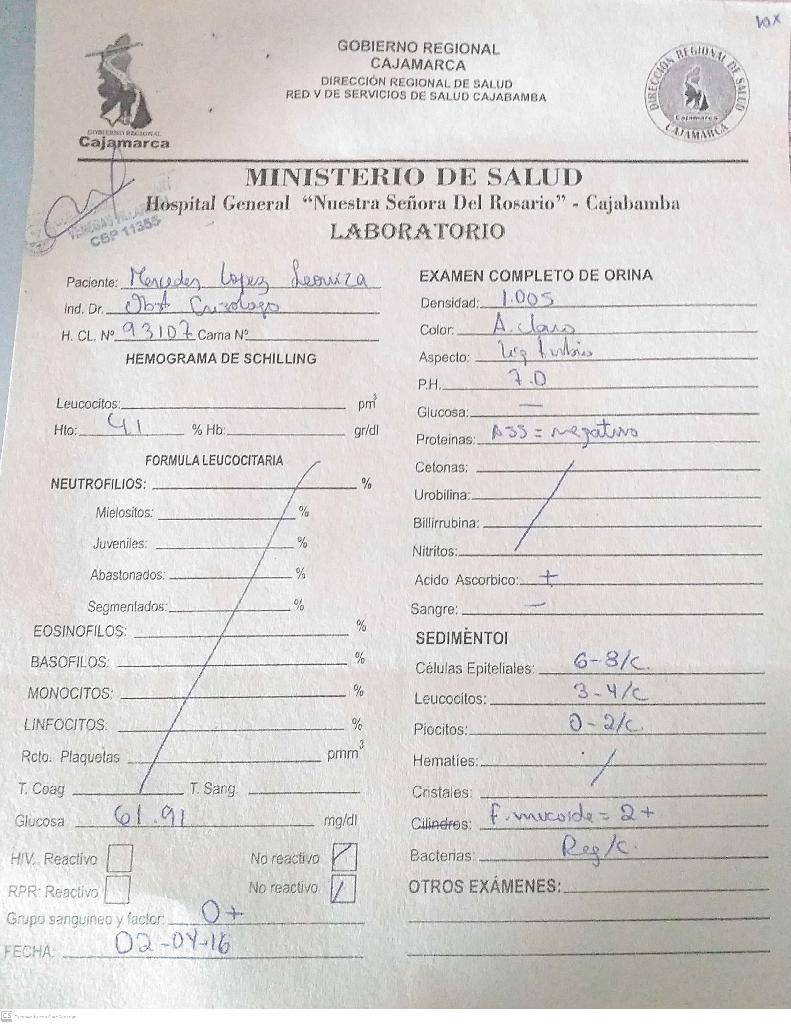 10x
GOBIERNO REGIONAL
CAJAMARCA
DIRECCIÓN REGIONAL DE SALUD
RED V DE SERVICIOS DE SALUD CAJABAMBA
GOBIERNO REGIONAL
Cajamarca
DIRECCIÓN REGIONAL DE SALUD
Cajamarca
CAJAMARCA
MINISTERIO DE SALUD
Hospital General "Nuestra Señora Del Rosario" - Cajabamba
LABORATORIO
CBP 11355
Paciente: Mercedes Lopez
Ind. Dr. Obst
H. CL. Nº 93107 Cama Nº
HEMOGRAMA DE SCHILLING
Leucocitos: pm3
Hto: 41 % Hb: gr/dl
FORMULA LEUCOCITARIA
NEUTROFILIOS: %
Mielositos: %
Juveniles: %
Abastonados: %
Segmentados: %
EOSINOFILOS: %
BASOFILOS: %
MONOCITOS: %
LINFOCITOS: %
Rcto. Plaquetas pmm3
T. Coag T. Sang.
Glucosa 61.91 mg/dl
HIV. Reactivo No reactivo
RPR: Reactivo No reactivo
Grupo sanguineo y factor: O+
FECHA: 02-04-16
EXAMEN COMPLETO DE ORINA
Densidad: 1.005
Color: A. claro
Aspecto: Lig turbio
P.H. 7.0
Glucosa: —
Proteinas: ASS = negativo
Cetonas:
Urobilina:
Billirrubina:
Nitritos:
Acido Ascorbico: +
Sangre: —
SEDIMENTOI
Células Epiteliales: 6-8/c.
Leucocitos: 3-4/c
Piocitos: 0-2/c.
Hematíes:
Cristales:
Cilindros: F. mucoide = 2+
Bacterias: Reg/c.
OTROS EXÁMENES:
CS